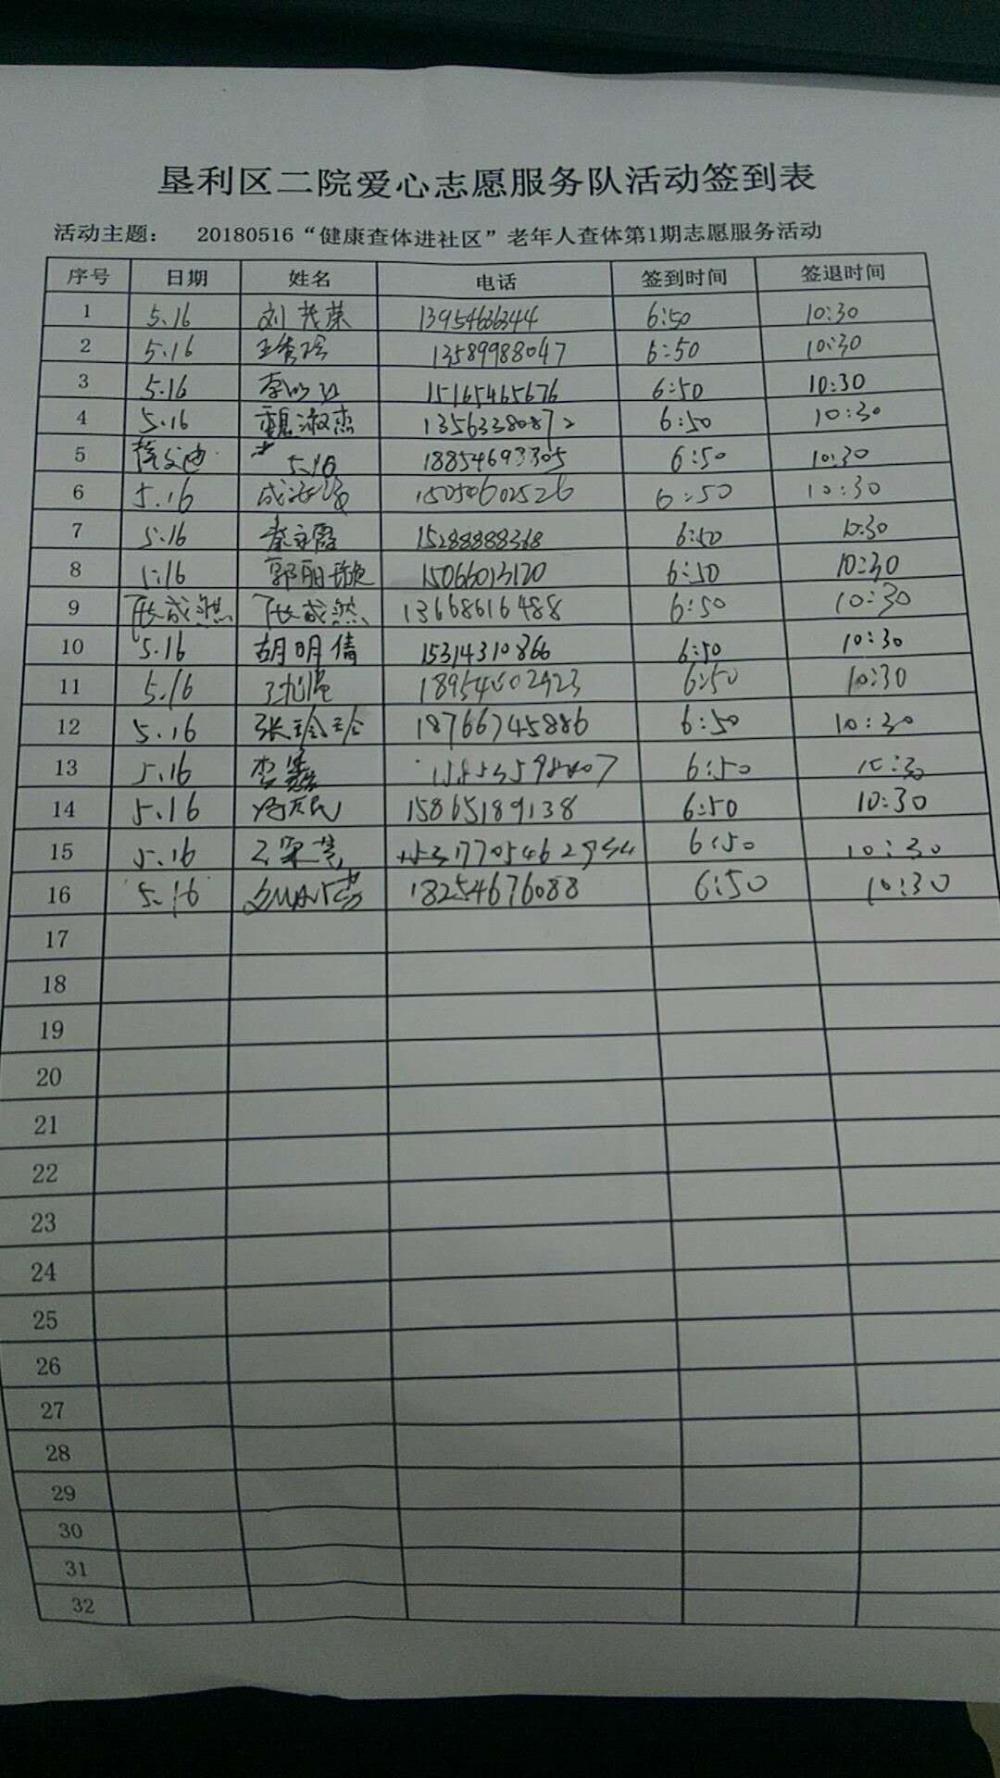 垦利区二院爱心志愿服务队活动签到表
活动主题： 20180516“健康查体进社区”老年人查体第1期志愿服务活动
序号 日期 姓名 电话 签到时间 签退时间
1 5.16 刘茂荣 13954636344 6:50 10:30
2 5.16 王秀玲 13589988047 6:50 10:30
3 5.16 15165465676 6:50 10:30
4 5.16 魏淑杰 13563380872 6:50 10:30
5 5.16 18854693305 6:50 10:30
6 5.16 15050602526 6:50 10:30
7 5.16 秦永霞 15288888368 6:50 10:30
8 5.16 郭丽璇 15066013120 6:50 10:30
9 张成燃 张成燃 13668616488 6:50 10:30
10 5.16 胡明倩 15314310866 6:50 10:30
11 5.16 6:50 10:30
12 5.16 张玲玲 18766745886 6:50 10:30
13 5.16 6:50 10:30
14 5.16 15865189138 6:50 10:30
15 5.16 6:50 10:30
16 5.16 18254676088 6:50 10:30
17
18
19
20
21
22
23
24
25
26
27
28
29
30
31
32